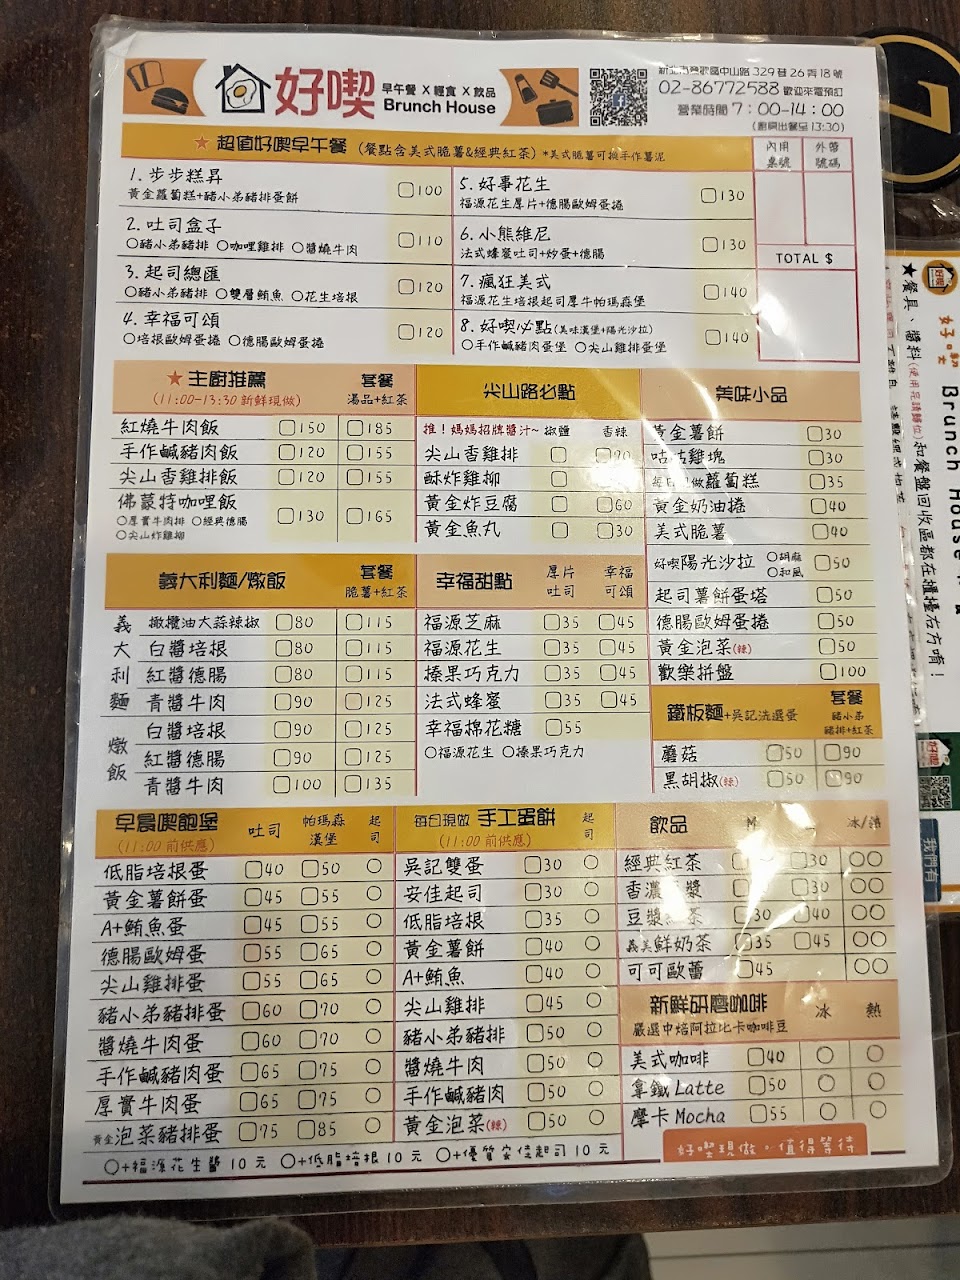 好喫
早午餐 X 輕食 X 飲品
Brunch House
中山路 329 巷 26 弄 18 號
02-86772588 歡迎來電預訂
營業時間 7：00-14：00
(廚房出餐至 13:30)
★ 超值好喫早午餐 (餐點含美式脆薯&經典紅茶) *美式脆薯可換手作薯泥
內用桌號
外帶號碼
TOTAL $
1. 步步糕昇 100
黃金蘿蔔糕+豬小弟豬排蛋餅
2. 吐司盒子 110
豬小弟豬排 咖哩雞排 醬燒牛肉
3. 起司總匯 120
豬小弟豬排 雙層鮪魚 花生培根
4. 幸福可頌 120
培根歐姆蛋捲 德腸歐姆蛋捲
5. 好事花生 130
福源花生厚片+德腸歐姆蛋捲
6. 小熊維尼 130
法式蜂蜜吐司+炒蛋+德腸
7. 瘋狂美式 140
福源花生培根起司厚牛帕瑪森堡
8. 好喫必點(美味漢堡+陽光沙拉) 140
手作鹹豬肉蛋堡 尖山雞排蛋堡
★主廚推薦
(11:00-13:30 新鮮現做)
套餐
湯品+紅茶
紅燒牛肉飯 150 185
手作鹹豬肉飯 120 155
尖山香雞排飯 120 155
佛蒙特咖哩飯 130 165
厚實牛肉排 經典德腸
尖山炸雞柳
尖山路必點
推！媽媽招牌醬汁~ 椒鹽 香辣
尖山香雞排
酥炸雞柳
黃金炸豆腐 60
黃金魚丸 30
美味小品
黃金薯餅 30
咕咕雞塊 30
蘿蔔糕 35
黃金奶油捲 40
美式脆薯 40
好喫陽光沙拉 胡麻 和風 50
起司薯餅蛋塔 50
德腸歐姆蛋捲 50
黃金泡菜(辣) 50
歡樂拼盤 100
義大利麵/燉飯
套餐
脆薯+紅茶
義大利麵
橄欖油大蒜辣椒 80 115
白醬培根 80 115
紅醬德腸 80 115
青醬牛肉 90 125
燉飯
白醬培根 90 125
紅醬德腸 90 125
青醬牛肉 100 135
幸福甜點
厚片吐司
幸福可頌
福源芝麻 35 45
福源花生 35 45
榛果巧克力 35 45
法式蜂蜜 35 45
幸福棉花糖 55
福源花生 榛果巧克力
鐵板麵+吳記洗選蛋
套餐
豬小弟豬排+紅茶
蘑菇 50 90
黑胡椒(辣) 50 90
早晨喫飽堡
(11:00 前供應)
吐司
帕瑪森漢堡
起司
低脂培根蛋 40 50
黃金薯餅蛋 45 55
A+鮪魚蛋 45 55
德腸歐姆蛋 55 65
尖山雞排蛋 55 65
豬小弟豬排蛋 60 70
醬燒牛肉蛋 60 70
手作鹹豬肉蛋 65 75
厚實牛肉蛋 65 75
黃金泡菜豬排蛋 75 85
每日現做 手工蛋餅
(11:00 前供應)
起司
吳記雙蛋 30
安佳起司 30
低脂培根 35
黃金薯餅 40
A+鮪魚 40
尖山雞排 45
豬小弟豬排 50
醬燒牛肉 50
手作鹹豬肉 50
黃金泡菜(辣) 50
+福源花生醬 10 元 +低脂培根 10 元 +優質安佳起司 10 元
飲品 M 冰/熱
經典紅茶 30
香濃 漿 30
豆漿 茶 30 40
義美鮮奶茶 35 45
可可歐蕾 45
新鮮研磨咖啡
嚴選中焙阿拉比卡咖啡豆
冰 熱
美式咖啡 40
拿鐵 Latte 50
摩卡 Mocha 55
好喫現做，值得等待
7
好喫
Brunch House
★餐具、醬料(使用完請歸位)和餐盤回收區都在櫃檯右方唷！
我們有